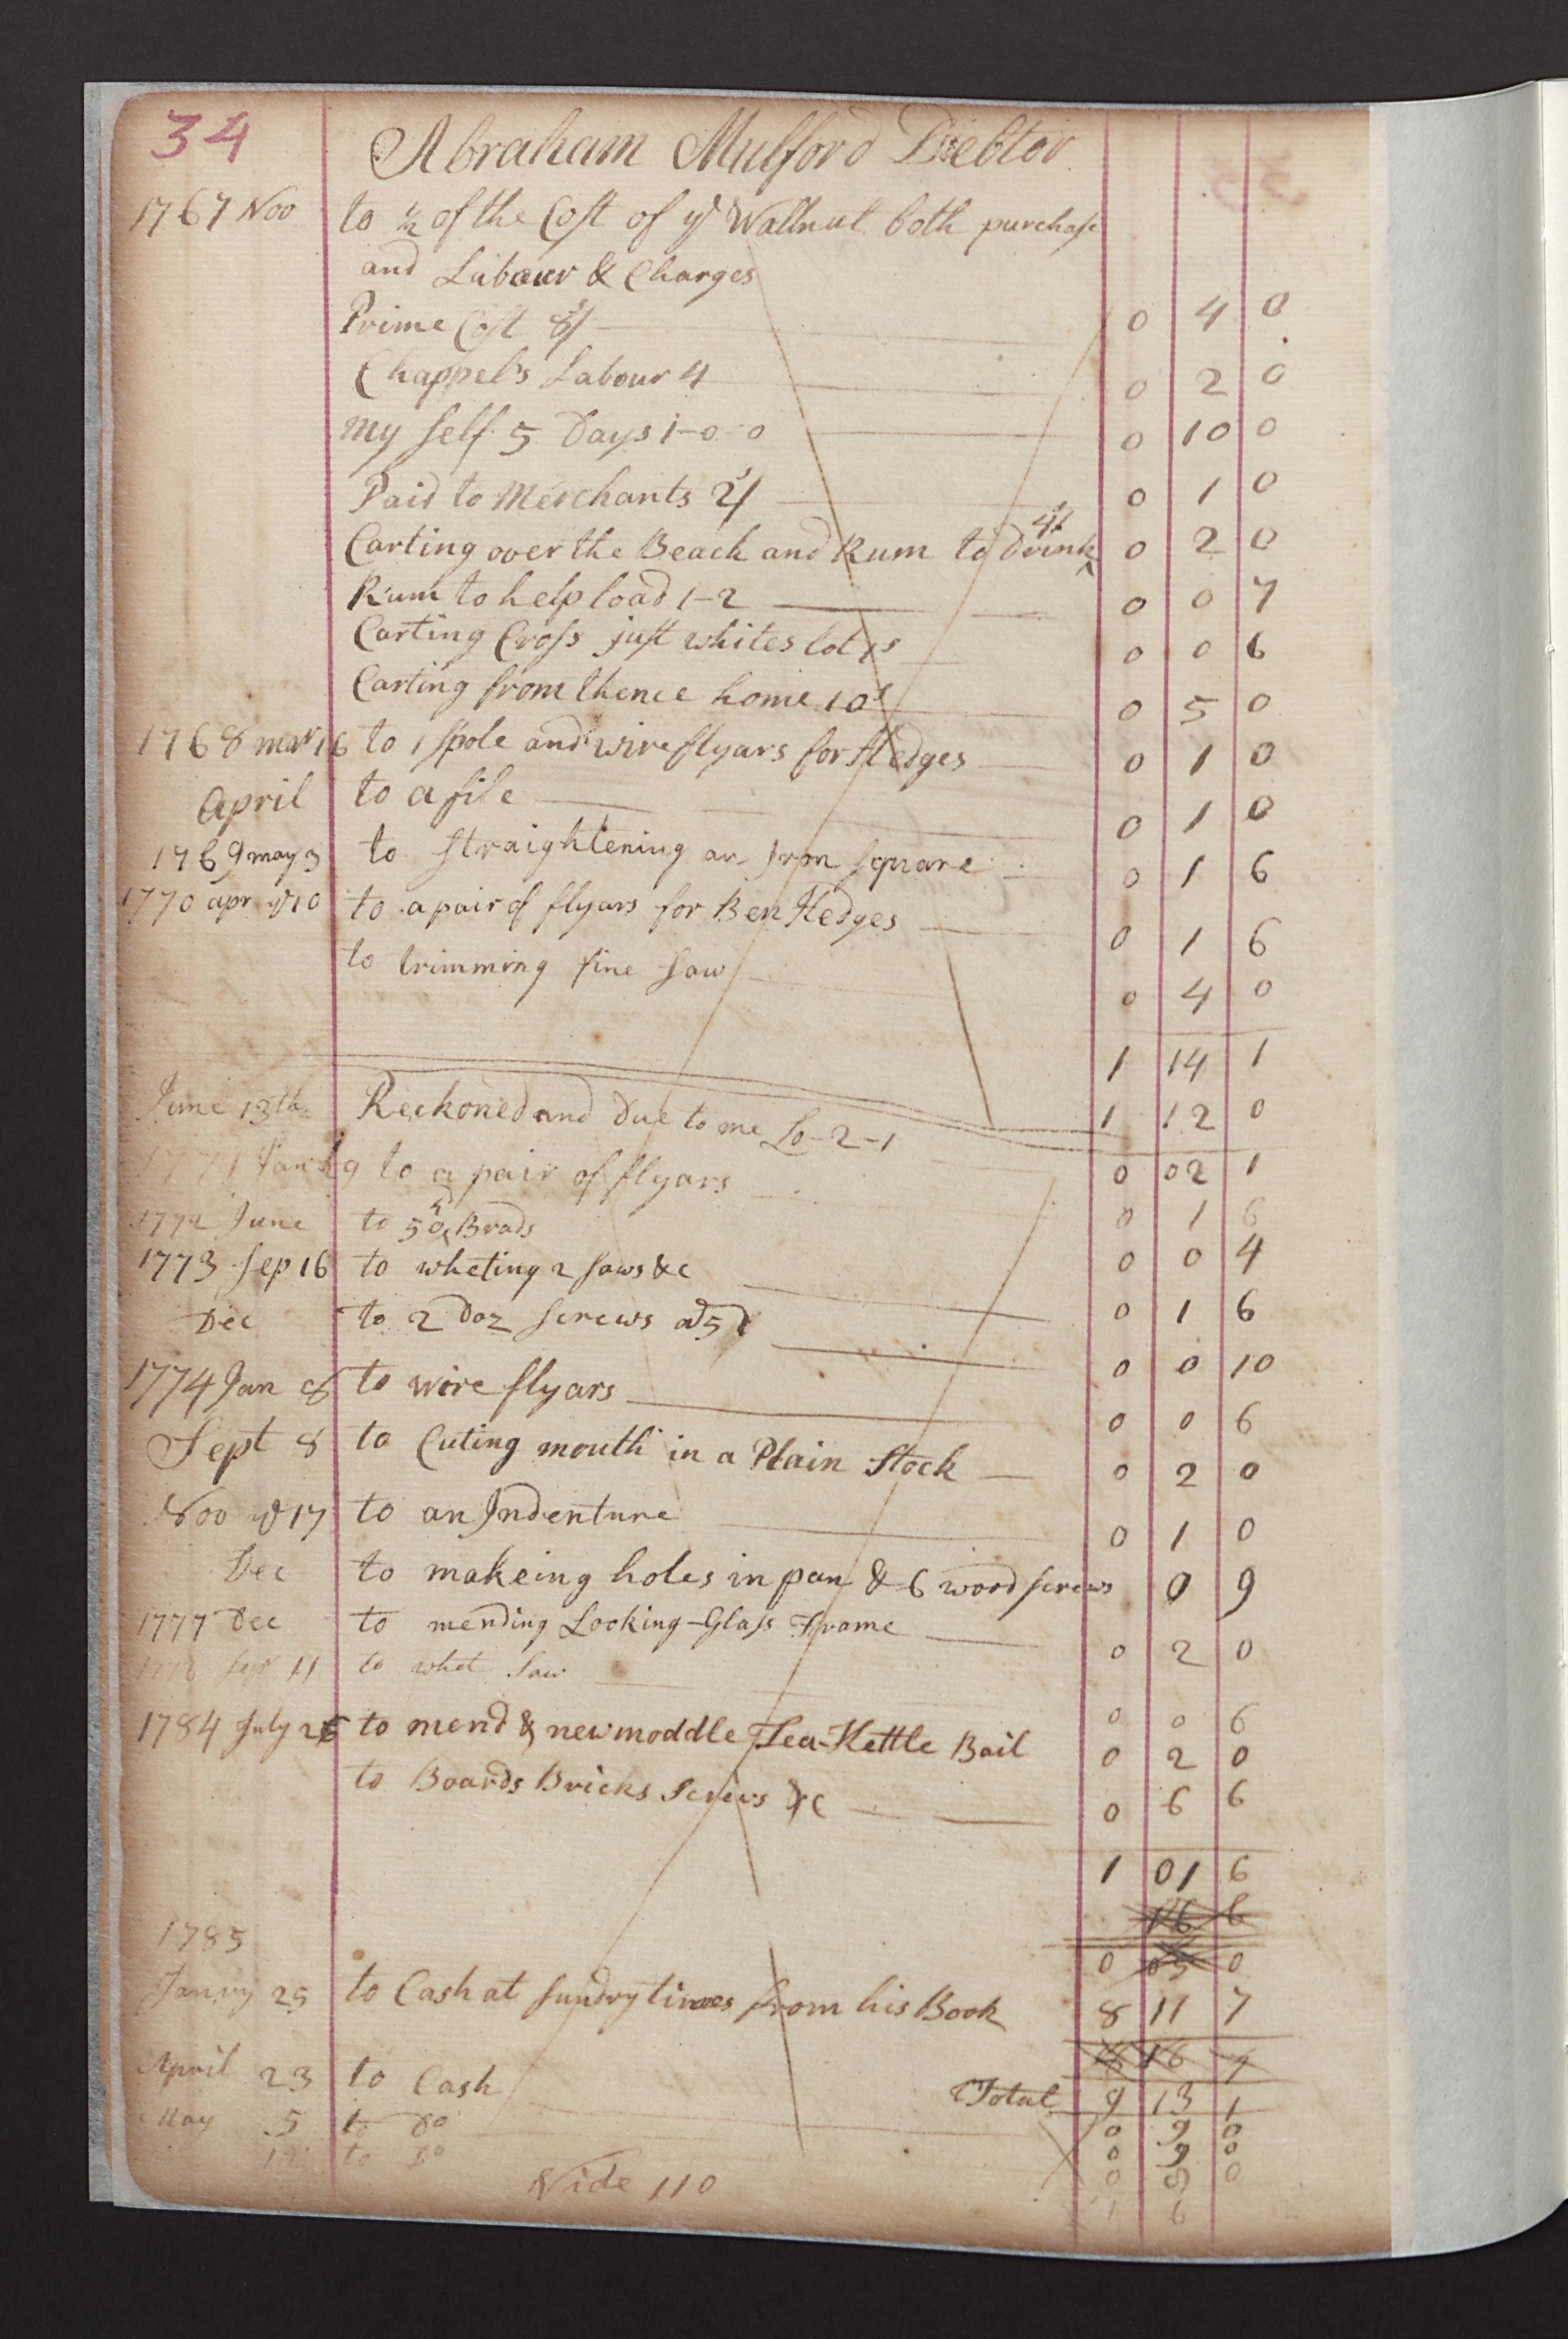 34
Abraham Mulford Debtor
1767 Nov to ½ of the Cost of ye Wallnut both purchase
and Labour & Charges
Prime Cost 8/ 0 4 0
Chappel's Labour 4 0 2 0
my self 5 Days 1-0-0 0 10 0
Paid to Merchants 2/ 0 1 0
Carting over the Beach and Rum to Drink 4/ 0 2 0
Rum to help load 1-2 0 0 7
Carting Cross just whites lot 1s 0 0 6
Carting from thence home 10s 0 5 0
1768 mar 16 to 1 spole and wire flyars for Hedges 0 1 0
April to a file 0 1 0
1769 may 3 to straightening an Iron square 0 1 6
1770 apr ye 10 to a pair of flyars for Ben Hedges 0 1 6
to trimming fine saw 0 4 0
1 14 1
June 13th Reckoned and Due to me £0-2-1 1 12 0
0 02 1
1771 9 to a pair of flyars 0 1 6
1772 June to 50 Brads 0 0 4
1773 Sep 16 to wheting 2 saws &c 0 1 6
Dec to 2 Doz screws at 5d 0 0 10
1774 Jan 8 to wire flyars 0 0 6
Sept 8 to Cuting mouth in a Plain Stock 0 2 0
Nov ye 17 to an Indenture 0 1 0
Dec to makeing holes in pan & 6 wood screws 0 9
1777 Dec to mending Looking-Glass Frame 0 2 0
11 to whet saw 0 0 6
1784 July 26 to mend & newmoddle Tea-Kettle Bail 0 2 0
to Boards Bricks Screws &c 0 6 6
1 01 6
16 6
1785 0 05 0
Janry 25 to Cash at sundry times from his Book 8 11 7
18 16 7
Total 9 13 1
April 23 to Cash 0 9 0
May 5 to Do 0 9 0
to Do 0 9 0
1 6
Vide 110